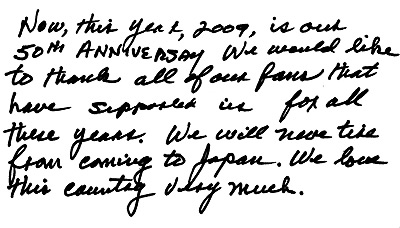 Now, this year, 2009, is our
50TH ANNIVERSAY We would like
to thank all of our fans that
have supported us for all
these years. We will never tire
from coming to Japan. We love
this country very much.